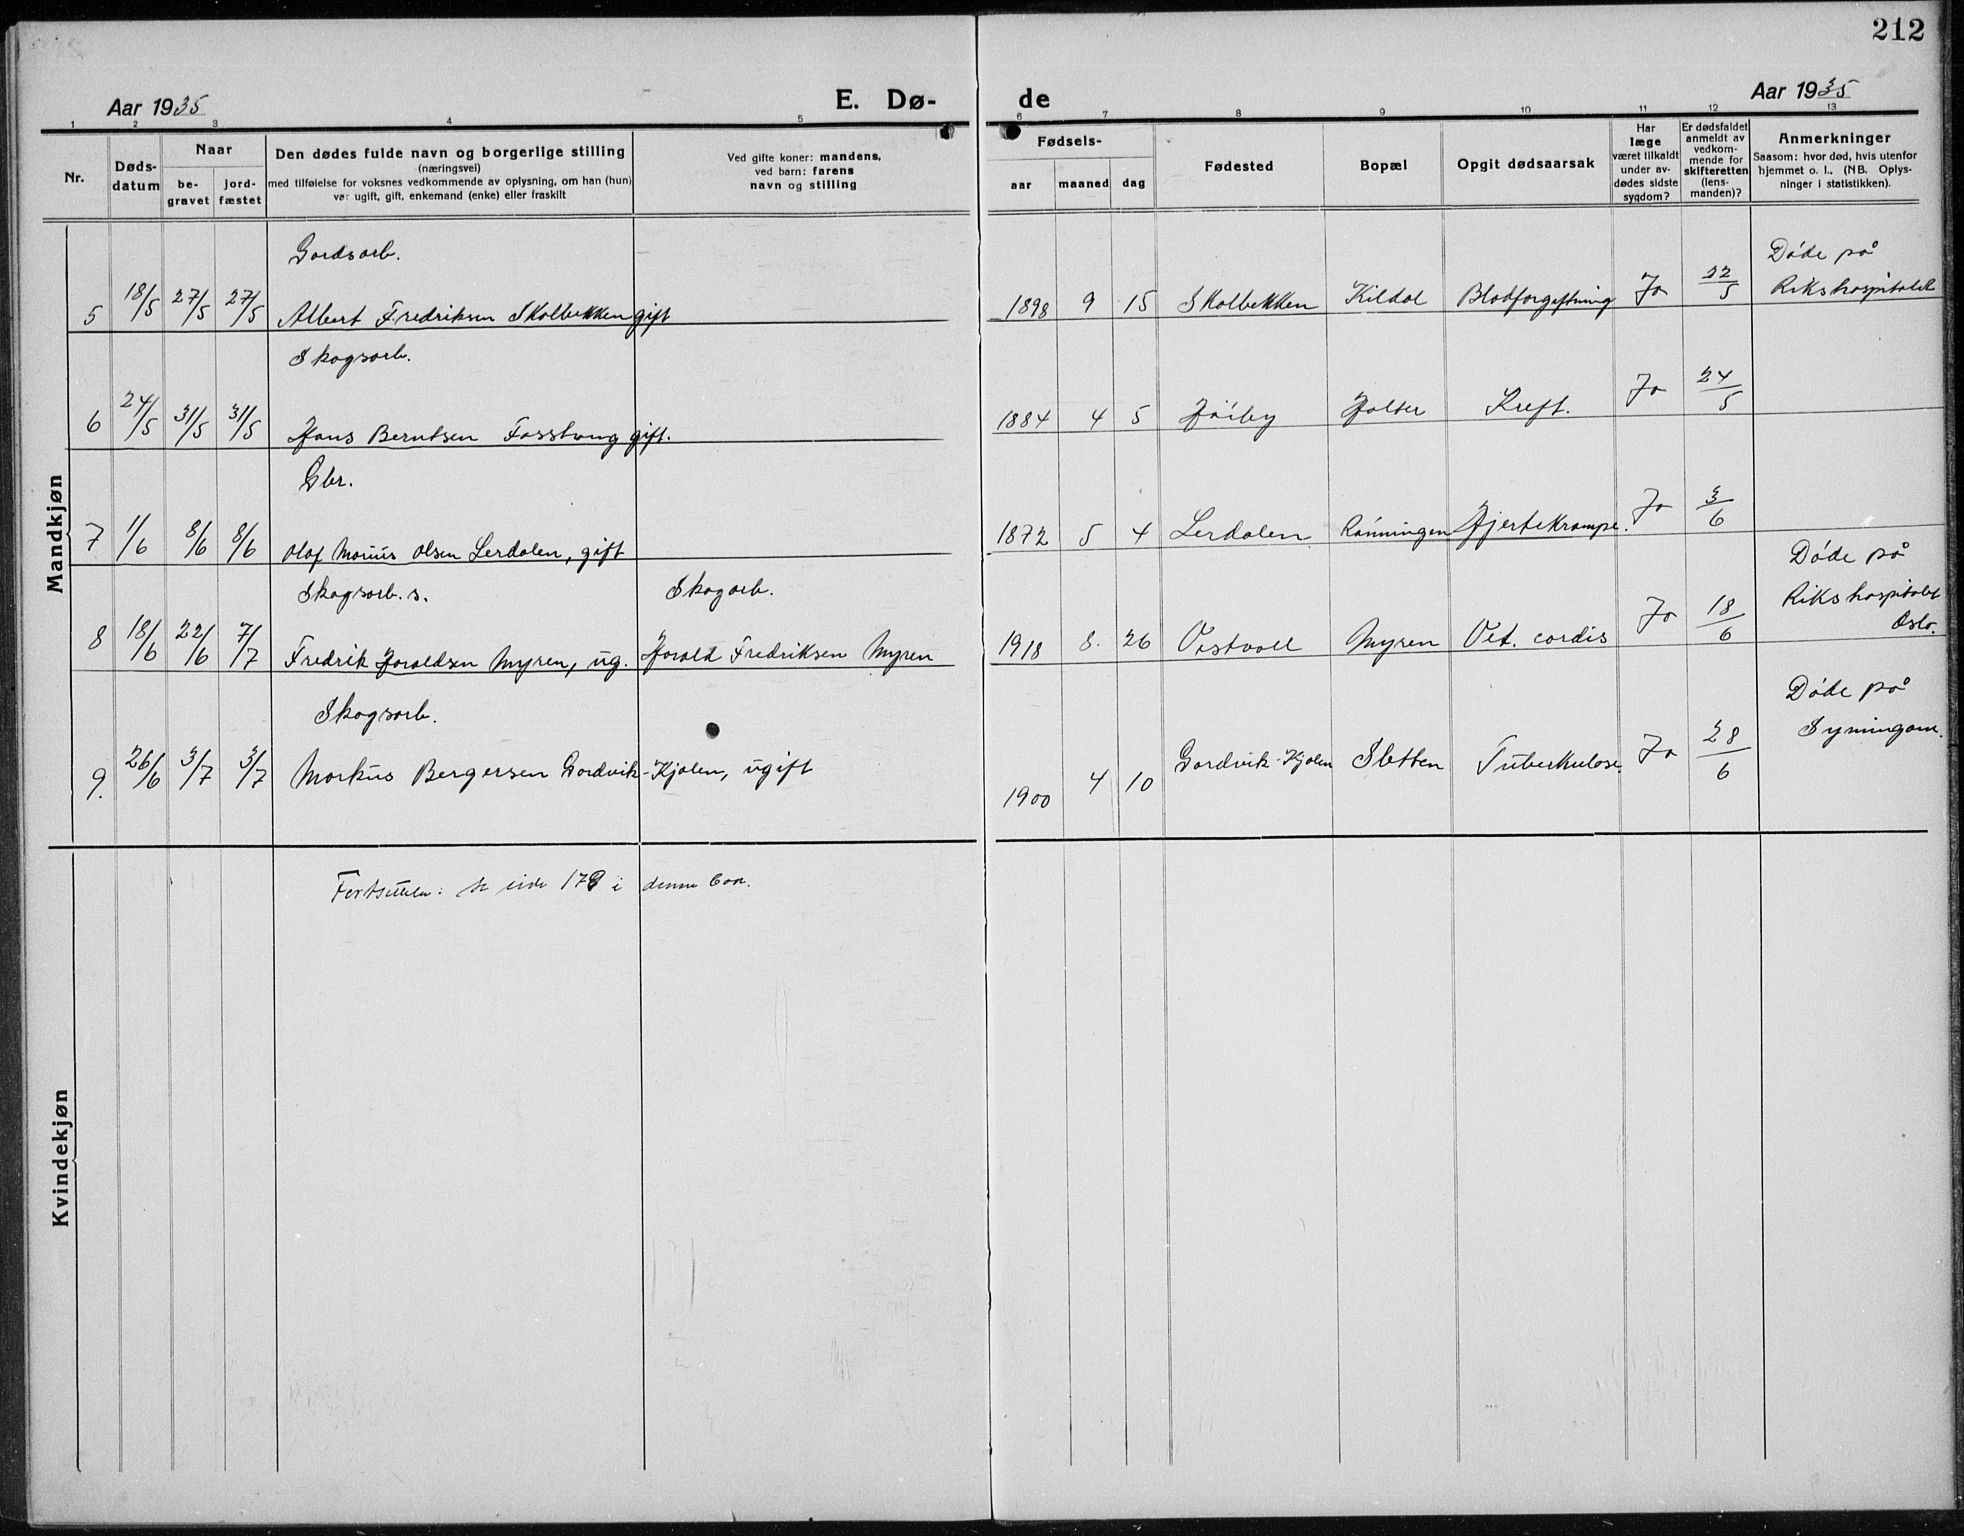 212
Aar 1935
E. Dø-
de
Aar 1935
1 2 3 4 5 6 7 8 9 10 11 12 13
Nr.
Døds-
datum
Naar
be-
gravet
jord-
fæstet
Den dødes fulde navn og borgerlige stilling
(næringsvei)
med tilføielse for voksnes vedkommende av oplysning, om han (hun)
var ugift, gift, enkemand (enke) eller fraskilt
Ved gifte koner: mandens,
ved barn: farens
navn og stilling
Fødsels-
aar maaned dag
Fødested
Bopæl
Opgit dødsaarsak
Har
læge
været tilkaldt
under av-
dødes sidste
sygdom?
Er dødsfaldet
anmeldt av
vedkom-
mende for
skifteretten
(lens-
manden)?
Anmerkninger
Saasom: hvor død, hvis utenfor
hjemmet o. l., (NB. Oplys-
ninger i statistikken).
Mandkjøn
Gardsarb.
Døde på
5 18/5 27/5 27/5 Albert Fredriksen Skalbekken gift 1898 9 15 Skalbekken Kildal Blodforgiftning Ja 22/5 Rikshospitalet
Skogsarb.
6 24/5 31/5 31/5 Hans Berntsen Fosstvang gift. 1884 4 5 Høiby Holter Kreft. Ja 24/5
Gbr.
7 1/6 8/6 8/6 Olaf Marius Olsen Lerdalen, gift 1872 5 4 Lerdalen Rønningen Hjertekrampe. Ja 3/6
Skogsarb. s. Skogarb.
Døde på
Rikshospitalet
Oslo.
8 18/6 22/6 7/7 Fredrik Haraldsen Myren, ug. Harald Fredriksen Myren 1918 8. 26 Østvoll Myren Vit. cordis Ja 18/6
Skogsarb.
Døde på
9. 26/6 3/7 3/7 Markus Bergersen Gardvik-Kjølen, ugift 1900 4 10 Gardvik-Kjølen Sletten Tuberkulose. Ja 28/6
Kvindekjøn
se side 178 i denne bok.